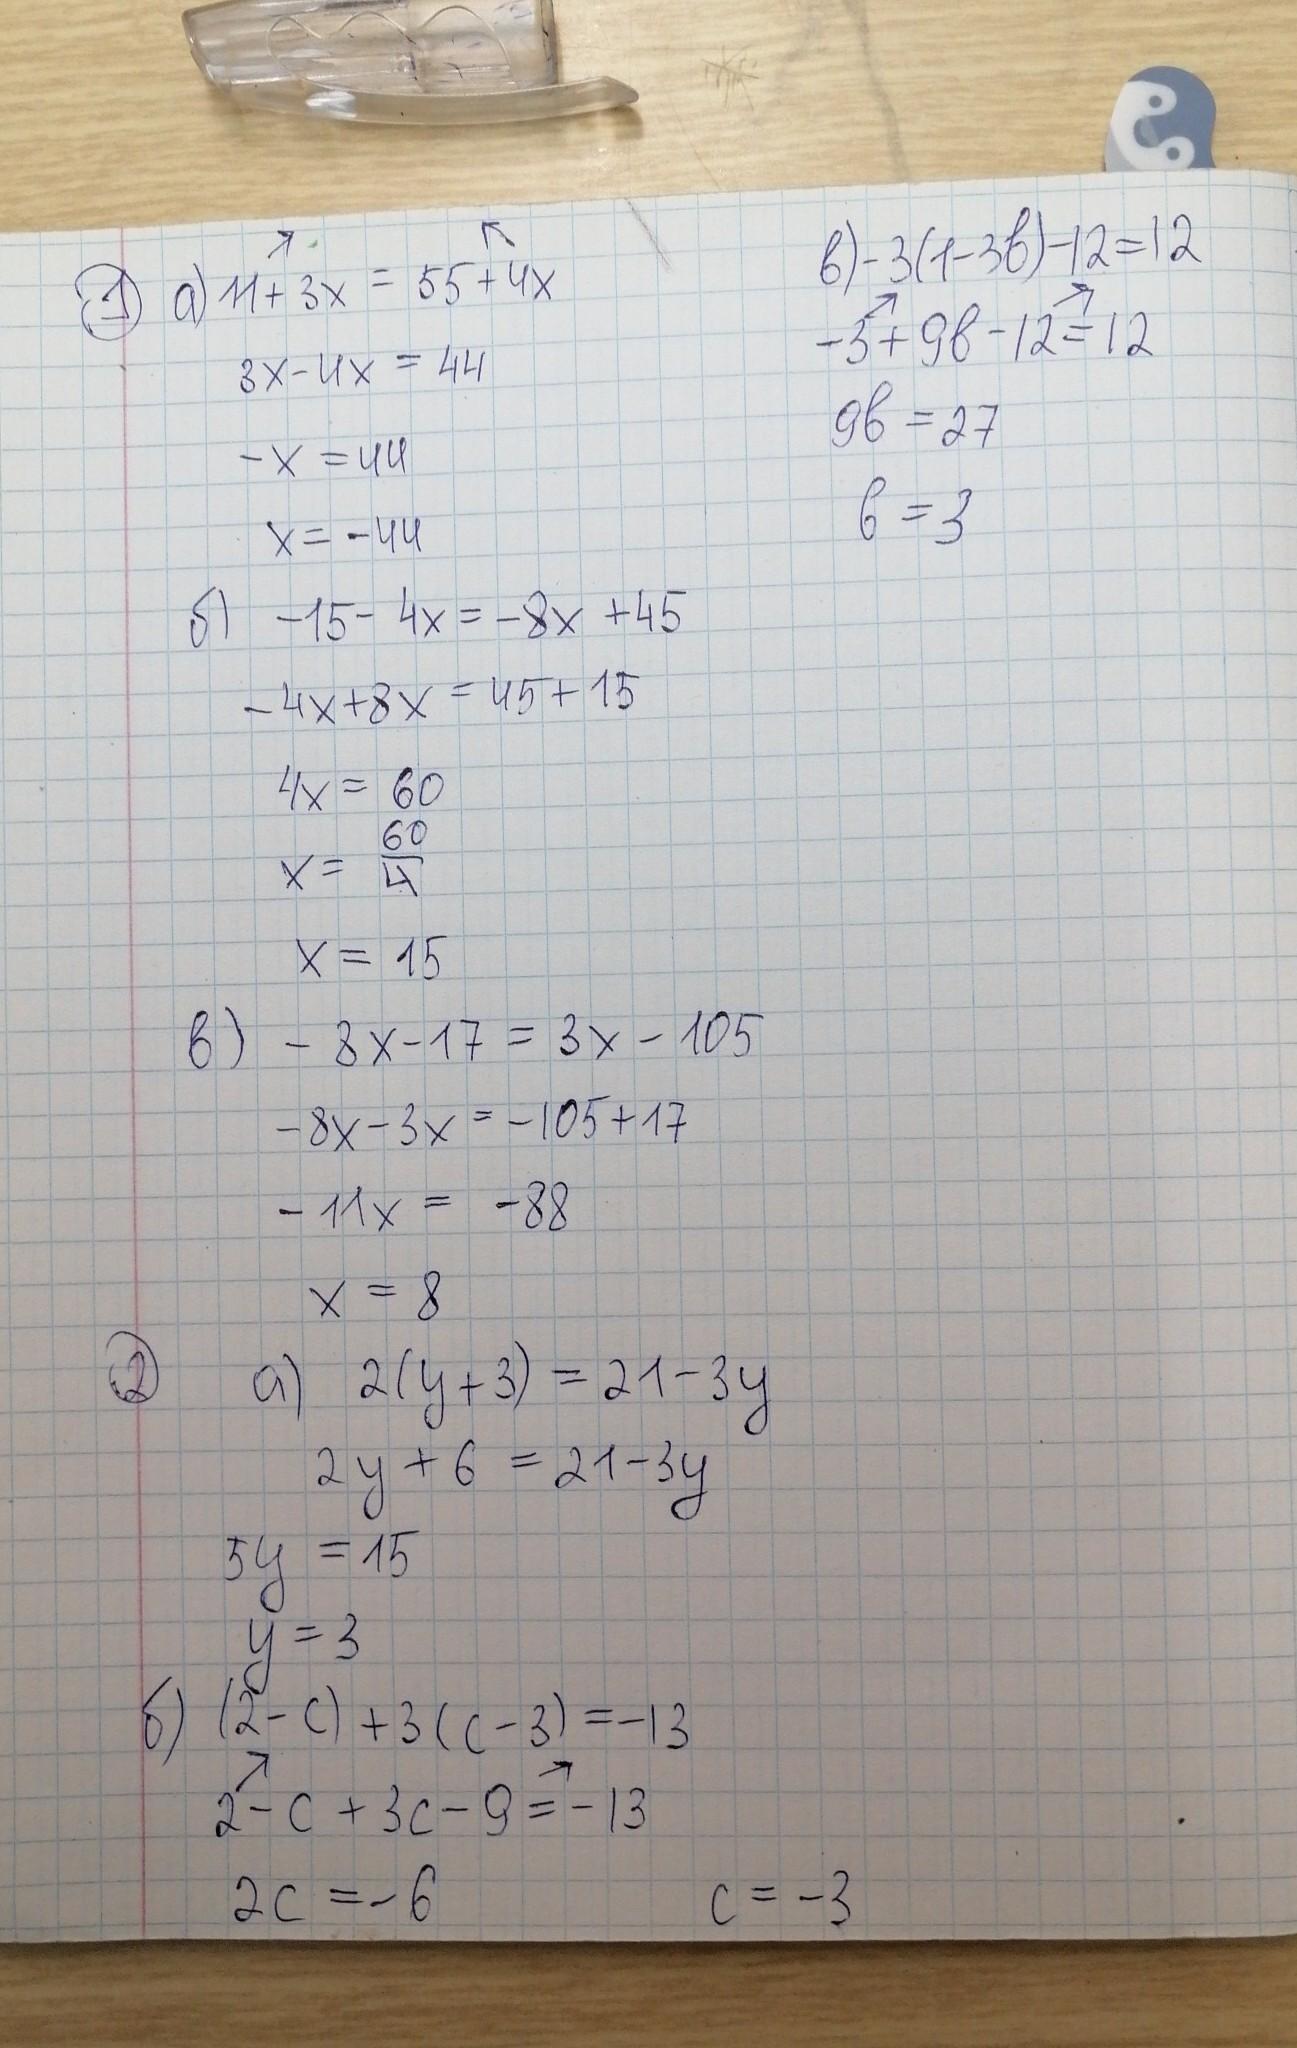 1 а) 11+3x = 55+4x
3x-4x = 44
-x = 44
x = -44
б) -15-4x = -8x+45
-4x+8x = 45+15
4x = 60
x = 60/4
x = 15
в) -8x-17 = 3x-105
-8x-3x = -105+17
-11x = -88
x = 8
2 а) 2(y+3) = 21-3y
2y+6 = 21-3y
5y = 15
y = 3
б) (2-c)+3(c-3) = -13
2-c+3c-9 = -13
2c = -6 c = -3
в) -3(1-3b)-12 = 12
-3+9b-12 = 12
9b = 27
b = 3